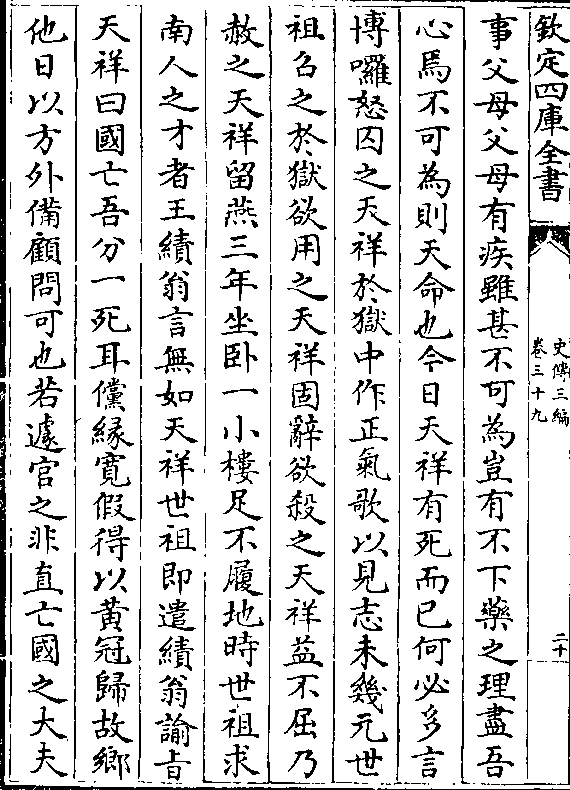 欽定四庫全書
史傳三編
卷三十九
二十
事父母父母有疾雖甚不可為豈有不下藥之理盡吾
心焉不可為則天命也今日天祥有死而已何必多言
博囉怒囚之天祥於獄中作正氣歌以見志未幾元世
祖召之於獄欲用之天祥固辭欲殺之天祥益不屈乃
赦之天祥留燕三年坐卧一小樓足不履地時世祖求
南人之才者王績翁言無如天祥世祖即遣績翁諭旨
天祥曰國亡吾分一死耳儻緣寛假得以黃冠歸故鄉
他日以方外備顧問可也若遽官之非直亡國之大夫